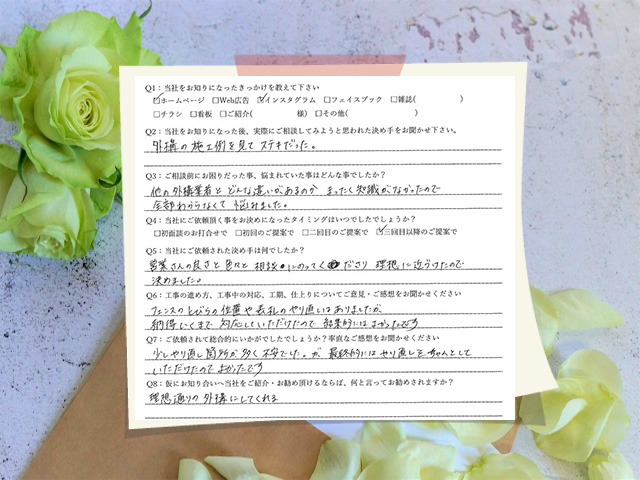 Q1：当社をお知りになったきっかけを教えて下さい
☑ホームページ □Web広告 ☑インスタグラム □フェイスブック □雑誌( )
□チラシ □看板 □ご紹介( 様) □その他( )
Q2：当社をお知りになった後、実際にご相談してみようと思われた決め手をお聞かせ下さい。
外構の施工例を見てステキだった。
Q3：ご相談前にお困りだった事、悩まれていた事はどんな事でしたか？
他の外構業者とどんな違いがあるのか まったく知識がなかったので
全部わからなくて悩みました。
Q4：当社にご依頼頂く事をお決めになったタイミングはいつでしたでしょうか？
□初面談のお打合せで □初回のご提案で □二回目のご提案で ☑三回目以降のご提案で
Q5：当社にご依頼された決め手は何でしたか？
営業さんの良さと色々と相談にのってくださり 理想に近づけたので
決めました。
Q6：工事の進め方、工事中の対応、工期、仕上りについてご意見・ご感想をお聞かせください
フェンスのとびらの位置や表札のやり直しはありましたが、
納得いくまで対応していただけたので 結果的にはよかったです
Q7：ご依頼されて総合的にいかがでしたでしょうか？率直なご感想をお聞かせください
少しやり直し箇所が多く不安でした。が、最終的にはやり直しもちゃんとして
いただけたのでよかったです
Q8：仮にお知り合いへ当社をご紹介・お勧め頂けるならば、何と言ってお勧めされますか？
理想通りの外構にしてくれる